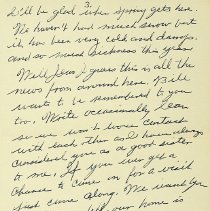 3.
I'll be glad when Spring gets here.
We haven't had much snow but
it has been very cold and damp,
and so much sickness this year.
Well, Jean I guess this is all the
news from around here. Bill
wants to be remembered to you
too. Write occasionally Jean
so we won't lose contact
with each other as I have always
considered you as a good sister
to me. If you ever get a
chance to come on for a visit
just come along. We want you
our home is